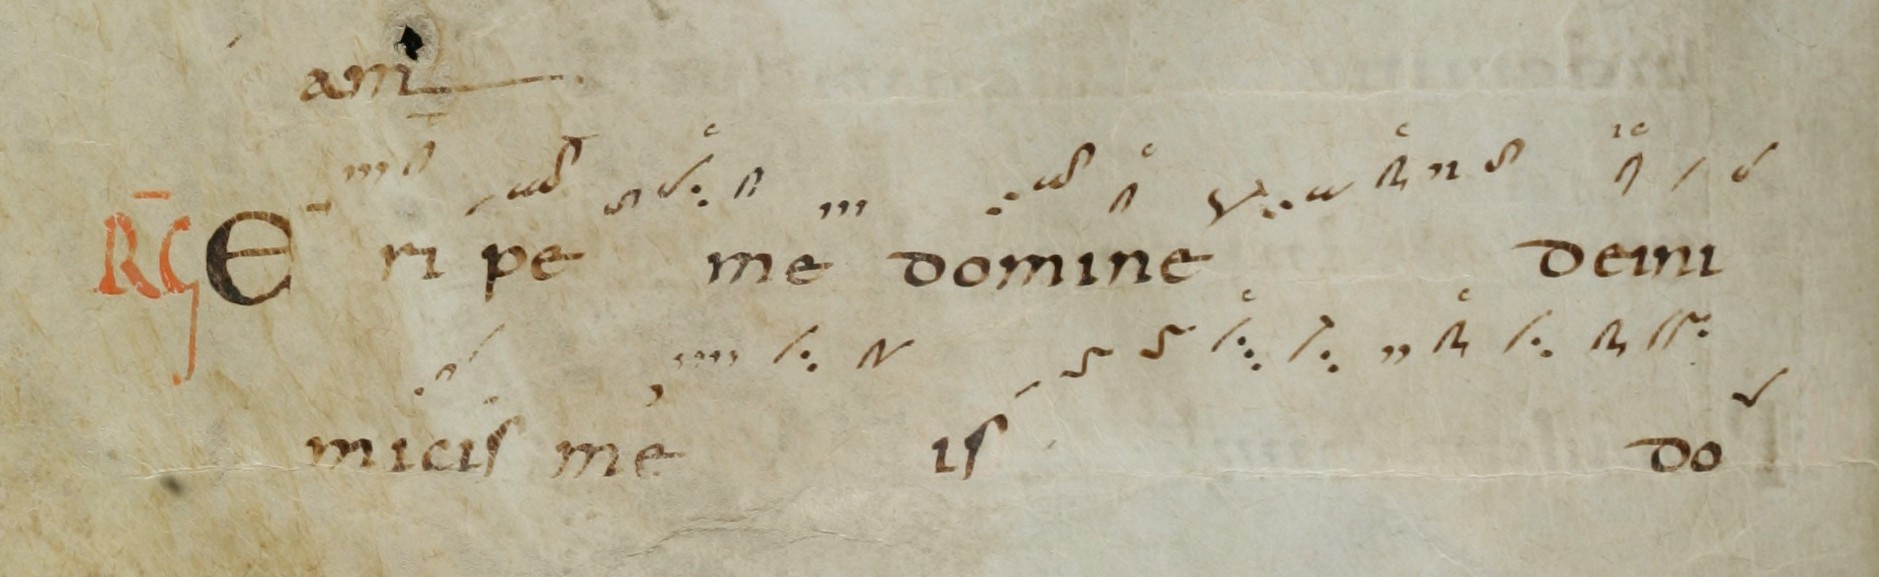 am
RG E ri pe me domine deini
micis me is do